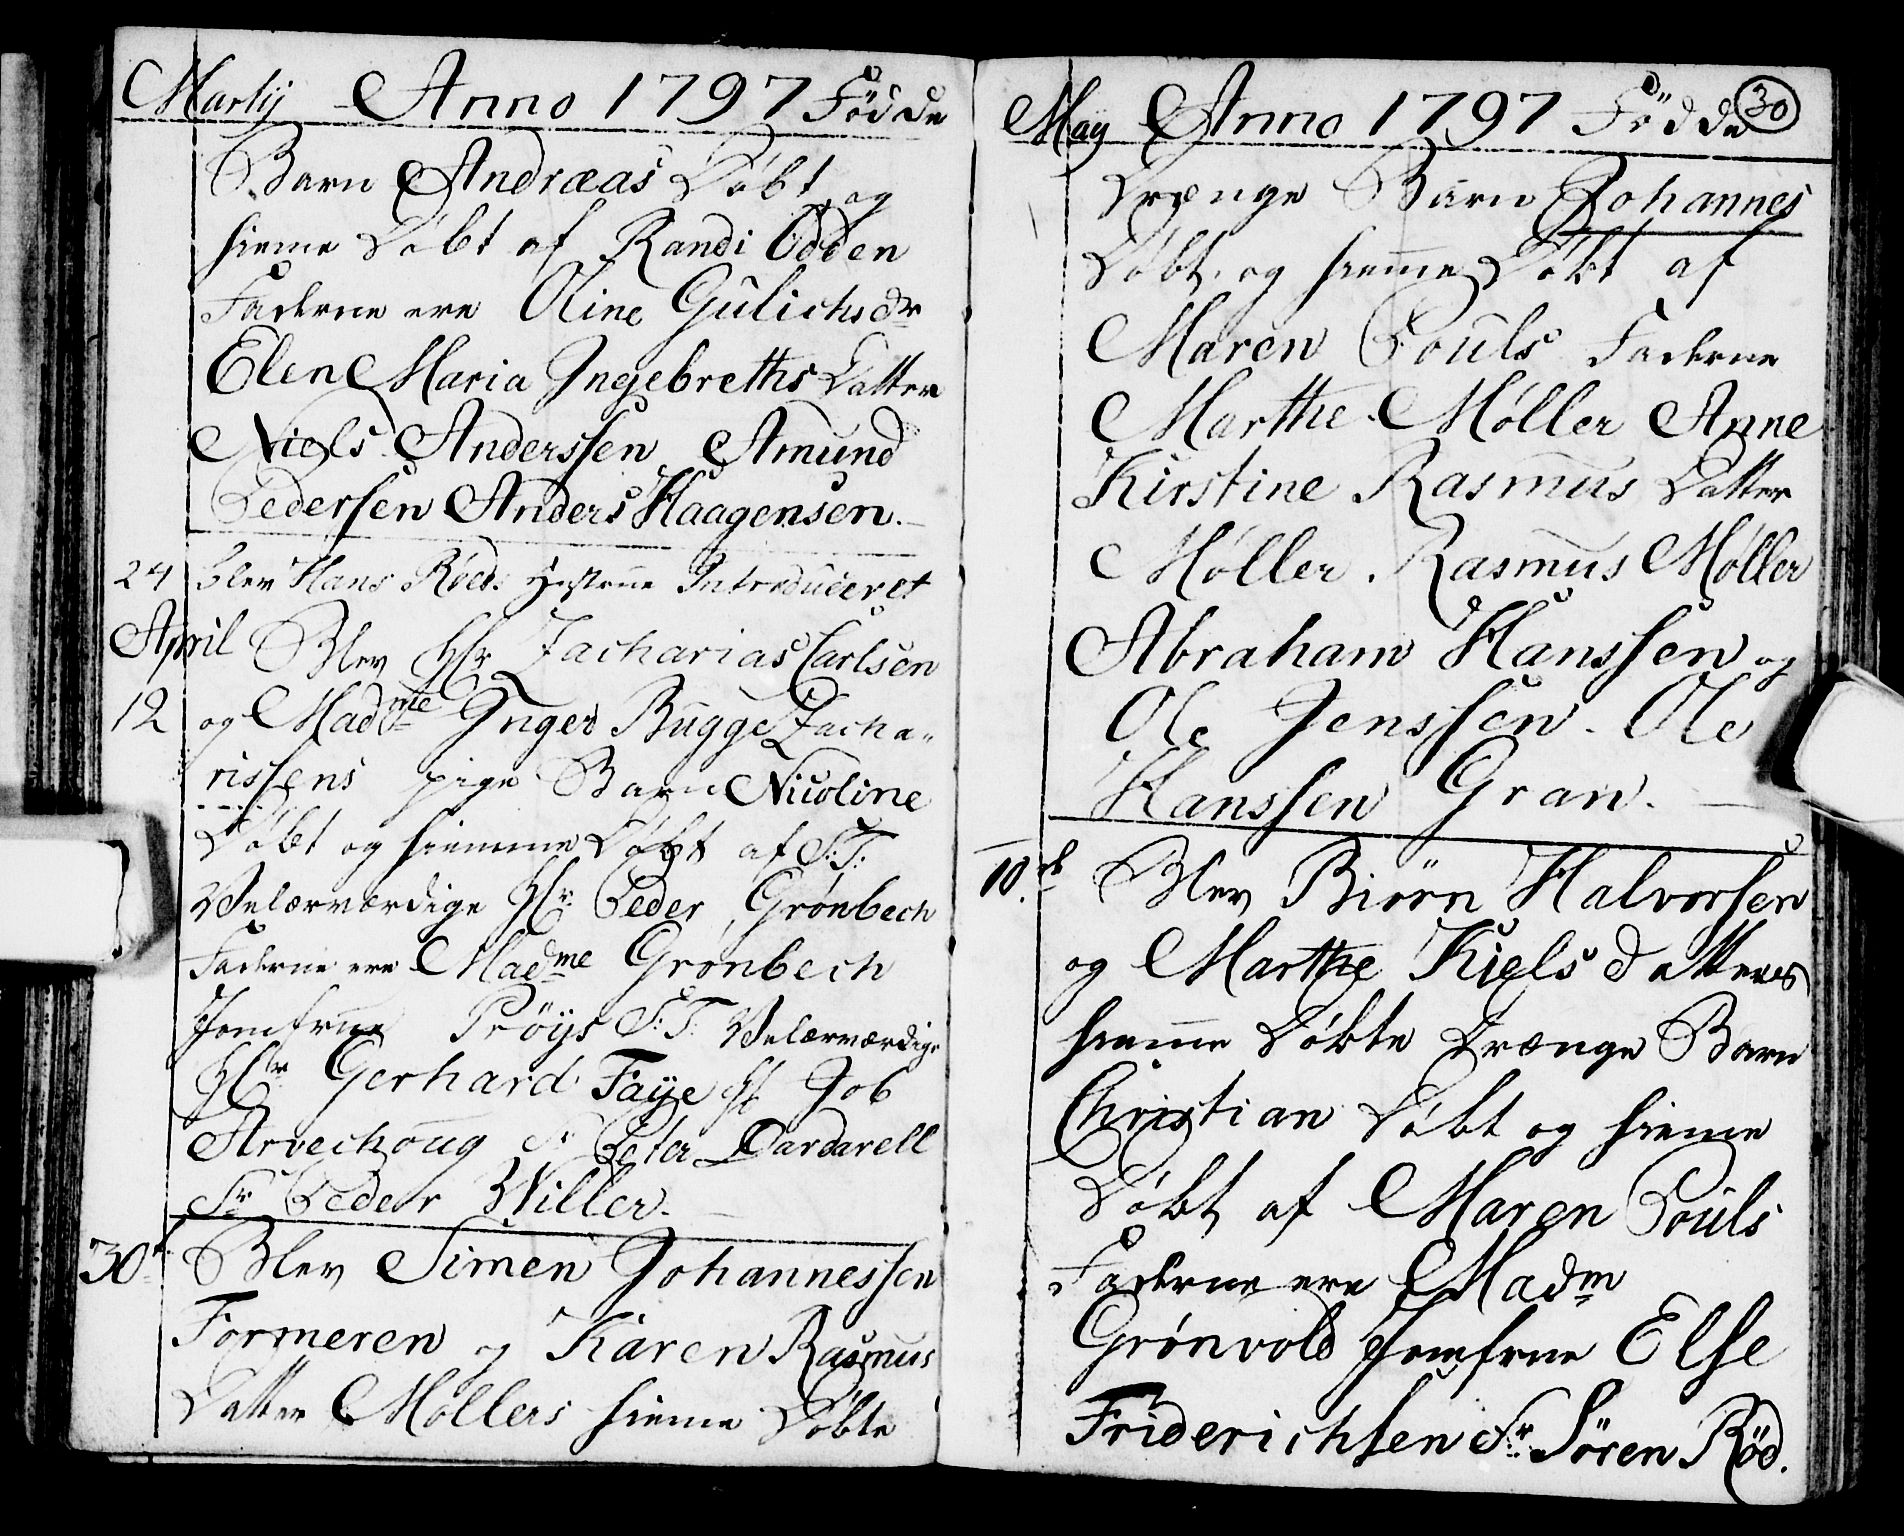 Martij Anno 1797 Födde
Barn Andræas Döbt og
hieme Döbt af Randi Odden
Faderne ere Oline Gulichsdr
Elen Maria Ingebreths Datter
Niels Anderssen Amund
Pederssen Anders Haagensen.
24 blev Hans Röed. Hustrue Introduceret
April Blev Hr Zacharias Carlsen
12 og Madme Inger Bugge Zacha„
rissens pige Barn Nicoline
Döbt og hiemme Döbt af S:T:
Velærværdige Hr Peder Grønbech
Faderne ere Madme Grønbech
Jomfrue Pröys S:T: Velærværdige
Hr Gerhard Faye Hr Job
Arvechoug Sr Peter Dardarell
Sr Peder Willer.
30t Blev Simen Johannessen
Formeren og Karen Rasmus
Datter Møllers hieme Döbte
May Anno 1797 Födde 30
Drænge Barn Johannes
Döbt og hieme Döbt af
Maren Pouls Faderne
Marthe Møller Anne
Kirstine Rasmus Datter
Møller. Rasmus Møller
Abraham Hanssen og
Ole Jenssen. Ole
Hanssen Gran.
10de Blev Biörn Halvorsen
og Marthe Kielsdatters
hieme Döbte Drænge Barn
Christian Döbt og hieme
Döbt af Maren Pouls
Faderne ere Madm
Grønvold Jomfrue Else
Friderichsen Sr Sören Röd.